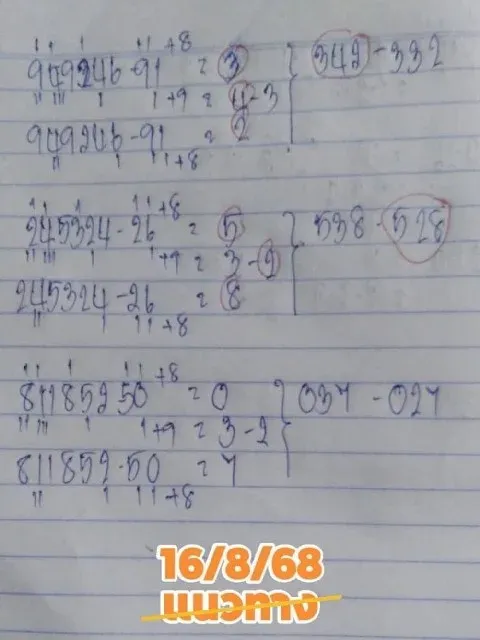 +8
949246-91 = 3
342-332
+9 = 4-3
949246-91 = 2
+8
+8
245324-26 = 5
538-528
+9 = 3-2
245324-26 = 8
+8
+8
811852-50 = 0
037-027
+9 = 3-2
811852-50 = 7
+8
16/8/68
แนวทาง